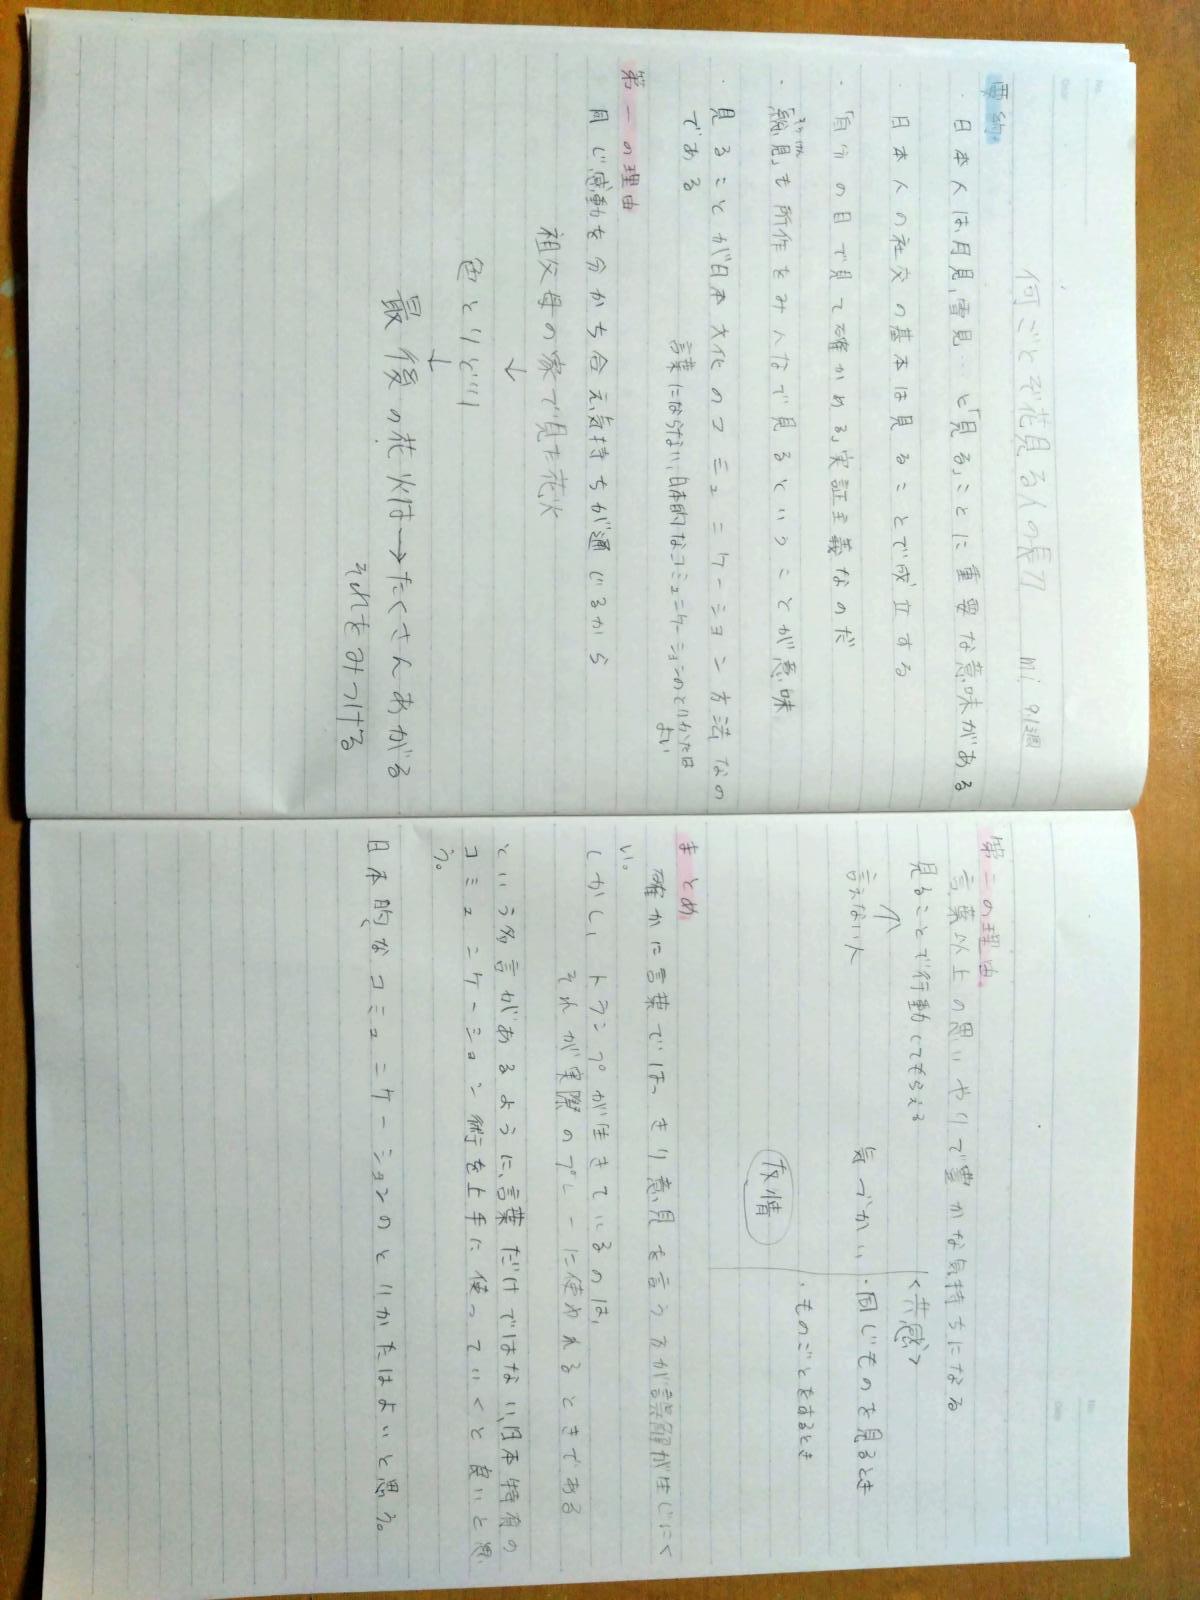 何ごとぞ花見る人の長刀 mi 9.3週
要約
・日本人は、月見、雪見…と「見る」ことに重要な意味がある
・日本人の社交の基本は見ることで成立する
・「自分の目で見て確かめる」実証主義なのだ
・「総見」も所作をみんなで見るということが意味
そうけん
・見ることが日本文化のコミュニケーション方法なの
である
言葉にならない、日本的なコミュニケーションのとりかたは
よい
第一の理由
同じ感動を分かち合え、気持ちが通じるから
祖父母の家で見た花火
↓
色とりどり
↓
最後の花火は→たくさんあがる
それをみつける
第二の理由
言葉以上の思いやりで豊かな気持ちになる
見ることで行動してもらえる
↑
言えない人
気づかい
友情
<共感>
・同じものを見るとき
・ものごとをするとき
まとめ
確かに言葉ではっきり意見を言う方が誤解が生じにく
い。
しかし、トランプが生きているのは、
それが実際のプレーに使われるときである
という名言があるように、言葉だけではない、日本特有の
コミュニケーション術を上手に使っていくと良いと思
う。
日本的なコミュニケーションのとりかたはよいと思う。